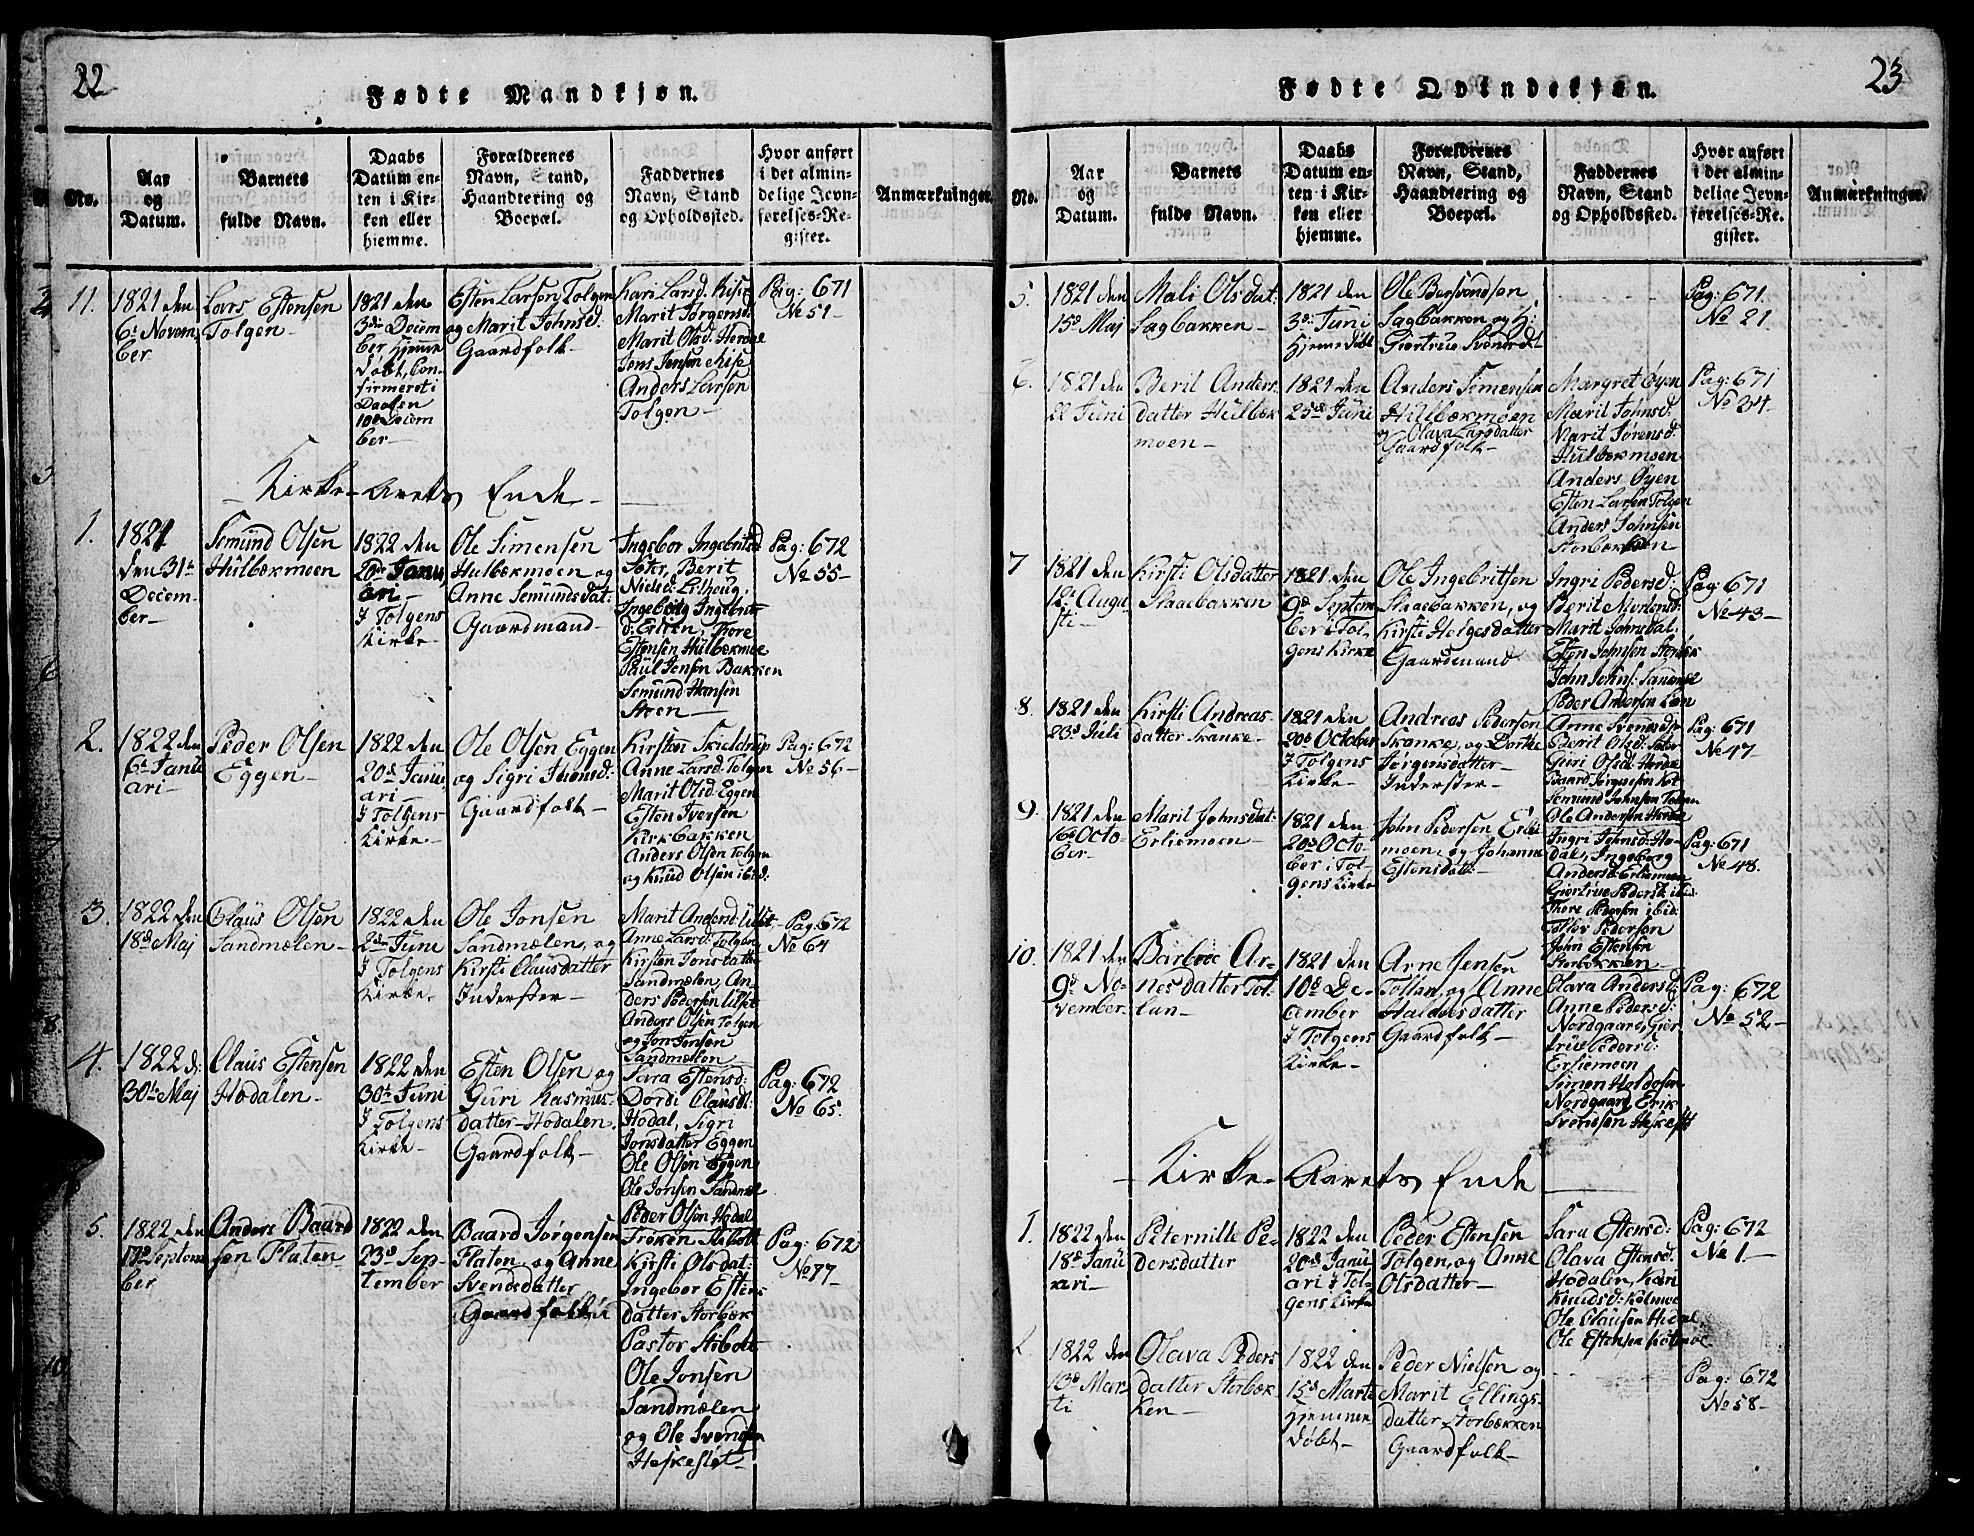 22
Fødte Mandkjøn.
No.
Aar
og
Datum.
Barnets
fulde Navn.
Daabs
Datum en-
ten i Kir-
ken eller
hjemme.
Forældrenes
Navn, Stand,
Haandtering og
Boepæl.
Faddernes
Navn, Stand
og Opholdssted.
Hvor anført
i det almin-
delige Jevn-
førelses-Re-
gister.
Anmærkninger.
11.
1821 den
6te Novem
ber
Lars Estensen
Tolgen
1821 den
3die Decem
ber hjemme
døbt, Con-
firmeret i
Daalen
10de Decem
ber
Esten Larsen Tolgen
og Marit Johnsd:
Gaardfolk
Kari Larsd:
Marit Jørgensd:
Marit Olsd:
Jens Jensen
Anders Larsen
Tolgen
Pag: 671
No 51
Kirke-Arets Ende
1.
1821
den 31te
Decem-
ber
Semund Olsen
Hulbækmoen
1822 den
20de Janu
ari
I Tolgens
Kirke
Ole Simensen
Hulbækmoen og
Anne Semundsdat:
Gaardmand
Ingebor Ingebritsd
Berit
Nielsd:
Ingeborg Ingebrits
d: Erlien, Thore
Estensen Hulbækmoe
Paul Jensen Bakken
Semund Hansen
Pag: 672
No 55
2.
1822 den
6te Janu
ari
Peder Olsen
Eggen
1822 den
20de Janu
ari
I Tolgens
Kirke
Ole Olsen Eggen
og Sigri
Gaardfolk
Kirsten Skieldrup
Anne Larsd: Tolgen
Marit Olsd: Eggen
Esten Iversen
Kirkbakken
Anders Olsen Tolgen
og Knud Olsen ibid:
Pag: 672
No 56
3.
1822 den
18de Maj
Claus Olsen
Sandmælen
1822 den
2den June
I Tolgens
Kirke
Ole Jonsen
Sandmælen, og
Kirsti Clausdatter
Inderster
Marit Andersd:
Anne Larsd: Tolgen
Kirsten Jonsdatter
Sandmælen, An
ders Pedersen
Anders Olsen Tolgen
og Jon Jonsen
Sandmælen
Pag: 672
No 64
4.
1822 d:
30te Maj
Claus Estensen
Hodalen
1822 den
30te Juni
I Tolgens
Kirke
Esten Olsen og
Guri Rasmus-
datter Hodalen.
Gaardfolk
Sara Estensd:
Dordi Clausd:
Hodal, Sigri
Jonsdatter Eggen
Ole Olsen Eggen
Ole Jonsen Sandmæl
Peder Olsen Hodal
Pag: 672
No 65.
5.
1822 den
Septem
ber
Anders Baard
sen Flaten
1822 den
23de Sep-
tember
Baard Jørgensen
Flaten, og Anne
Svendsdatter
Gaardfolk
Frøken Stibolt
Kirsti Olsdat:
Ingebor Estens
datter Storbæk
Pastor Stibolt
Ole Jonsen
Sandmælen
og Ole Svendsen
Pag: 672
No 77
23
Fødte Qvindekjøn.
No.
Aar
og
Datum.
Barnets
fulde Navn.
Daabs
Datum en-
ten i Kir-
ken eller
hjemme.
Forældrenes
Navn, Stand,
Haandtering og
Boepæl.
Faddernes
Navn, Stand
og Opholdssted.
Hvor anført
i det almin-
delige Jevn-
førelses-Re-
gister.
Anmærkninger.
5.
1821 den
15de Maj
Mali Olsdat:
Sagbakken
1821 den
3die Juni
hjemmedøbt
Ole Bersvendsen
Sagbakken og H:
Giertrue Svensdat
Pag: 671
No 21
6.
1821 den
22 Juni
Beril Anders-
datter Hulbæk
moen
1821 den
25de Juni
Anders Simensen
Hulbækmoen
og Olava Larsdatter
Gaardfolk
Margret Øyen
Maril Johnsd:
Marit Jørensd:
Hulbækmoen
Anders Øyen
Esten Larsen Tolgen
Anders Johnsen
Storbækken
Pag: 671
No 34
7
1821 den
12te Augu
sti
Kirsti Olsdatter
Staaebakken
1821 den
9de Septem
ber i Tol-
gens Kirke
Ole Ingebritsen
Staaebakken, og
Kirsti Helgesdatter
Gaardmand
Ingri Pedersd:
Berit Mortensd:
Marit Johnsdat:
Esten Johnsen
John Johns:
Peder Andersen
Pag: 671
No 43
8.
1821 den
23de Juli
Kirsti Andreas-
datter Skanke
1821 den
20de October
I Tolgens
Kirke
Andreas Pedersen
Skanke, og Dorthe
Jørgensdatter
Inderster
Anne Svendsd:
Berit Olsd:
Guri Olsd:
Baard Jørgensen
Semund Johnsen Tolgen
Ole Andersen
Pag: 671
No 47
9.
1821 den
16de Octo-
ber
Maril Johnsdat:
Erliemoen
1821 den
20de Octo
ber i Tol-
gens Kirke
John Pedersen Erlie
moen, og Johanne
Estensdatt:
Ingri Johnsd: Ho-
dal, Ingeborg
Andersd: Erliemoen
Giertrue Pedersd: ibid:
Thore Pedersen ibid:
Tollev Pedersen
John Estensen
Storbækken
Pag: 671
No 48.
10.
1821 den
9de No-
vember
Barbroe Ar-
nesdatter Tol-
lan
1821 den
10de De-
cember
I Tolgens
Kirke
Arne Jensen
Tollan, og Anne
Haldosdatter
Gaardfolk
Olava Andersd:
Anne Pedersd:
Nordgaard, Gier
true Pedersd:
Erliemoen
Simon Haldosen
Nordgaard, Erik
Svendsen
Pag: 672
No 52
Kirke-Aarets Ende
1.
1822 den
18de Janu
ari
Peternille Pe-
dersdatter
1822 den
20de Janu
ari I Tol-
gens Kirke
Peder Estensen
Tolgen, og Anne
Olsdatter
Sara Estensd:
Olava Estensd:
Hodalen, Kari
Knudsd:
Ole Clausen Hodal
Ole Estensen
Pag: 672
No 1
2
1822 den
13de Mar-
ti
Olava Peders
datter Storbæk-
ken
1822 den
15de Marti
hjemme
døbt
Peder Nielsen og
Marit Ellings-
datter Storbækken
Gaardfolk
Pag: 672
No 58